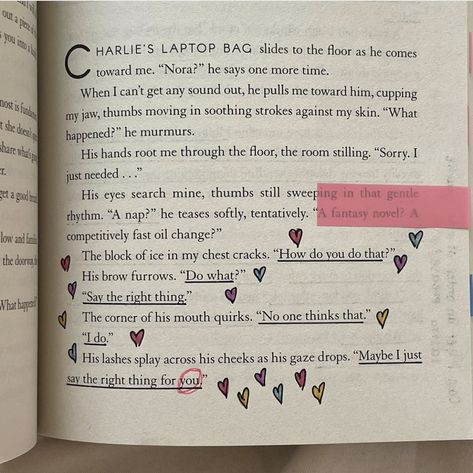 out a piece of
s you into a b
most is fundam
t she doesn't
share what's g
get a good
low and famili
the doorway,
What happened
CHARLIE'S LAPTOP BAG slides to the floor as he comes
toward me. “Nora?” he says one more time.
When I can't get any sound out, he pulls me toward him, cupping
my jaw, thumbs moving in soothing strokes against my skin. “What
happened?” he murmurs.
His hands root me through the floor, the room stilling. “Sorry. I
just needed . . .”
His eyes search mine, thumbs still sweeping in that gentle
rhythm. “A nap?” he teases softly, tentatively. “A fantasy novel? A
competitively fast oil change?”
The block of ice in my chest cracks. “How do you do that?”
His brow furrows. “Do what?”
“Say the right thing.”
The corner of his mouth quirks. “No one thinks that.”
“I do.”
His lashes splay across his cheeks as his gaze drops. “Maybe I just
say the right thing for you.”